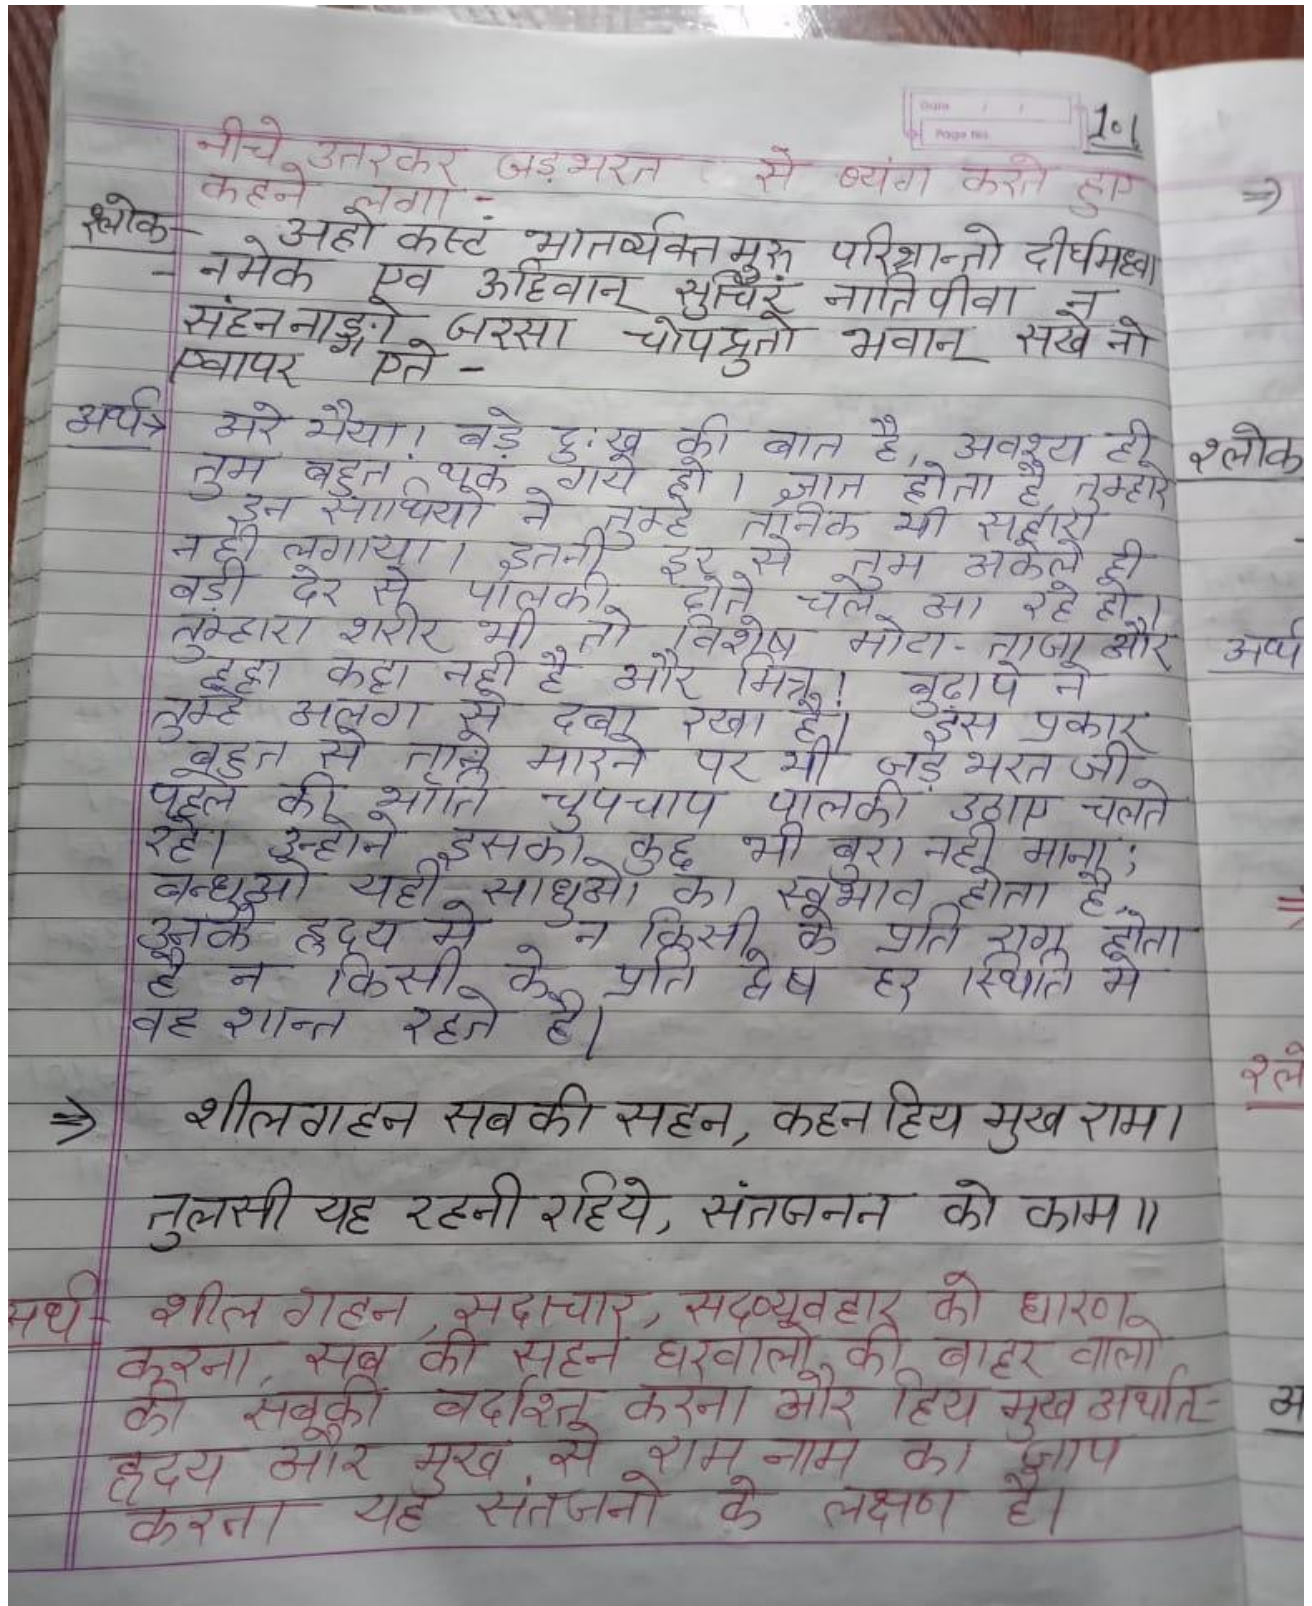 Date / /
Page No.
101
नीचे उतरकर जड़भरत से ब्यंग करते हुए
कहने लगा -
श्लोक- अहो कस्टं भातर्व्यक्तमुरु परिश्रान्तो दीर्घमध्वा
- नमेक एव ऊहिवान् सुचिरं नातिपीवा न
संहननाङ्गो जरसा चोपद्रुतो भवान् सखे नो
एवापर एते -
अर्थ→ अरे भैया! बड़े दुःख की बात है, अवश्य ही
तुम बहुत थक गये हो। ज्ञात होता है तुम्हारे
इन साथियो ने तुम्हे तनिक भी सहारा
नही लगाया। इतनी दूर से तुम अकेले ही
बडी देर से पालकी ढोते चले आ रहे हो।
तुम्हारा शरीर भी तो विशेष मोटा-ताजा और
हट्टा कट्टा नही है और मित्र! बुढापे ने
तुम्हे अलग से दबा रखा है। इस प्रकार
बहुत से ताने मारने पर भी जड़ भरत जी
पहले की भाति चुपचाप पालकी उठाए चलते
रहे। उन्होने इसका कुछ भी बुरा नही माना;
बन्धुओ यही साधुओ का स्वभाव होता है
उनके हृदय मे न किसी के प्रति राग होता
है न किसी के प्रति द्वेष हर स्थिति मे
वह शान्त रहते है।
⇒ शीलगहन सबकी सहन, कहन हिय मुख राम।
तुलसी यह रहनी रहिये, संतजनन को काम॥
अर्थ- शील गहन, सदाचार, सदव्यवहार को धारण
करना, सब की सहन घरवालो की बाहर वालो
की सबकी बर्दाश्त करना और हिय मुख अर्थात-
हृदय और मुख से राम नाम का जाप
करना यह संतजनो के लक्षण है।
⇒
श्लोक
अर्थ
⇒
श्लो
अ